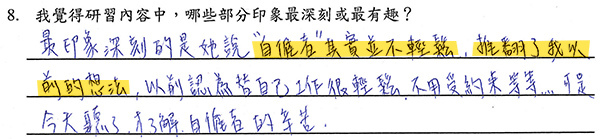 8. 我覺得研習內容中，哪些部分印象最深刻或最有趣？
最印象深刻的是她說"自僱者"其實並不輕鬆，推翻了我以
前的想法，以前認為替自己工作很輕鬆、不用受約束等等…可是
今天聽了，才了解自僱者的辛苦.